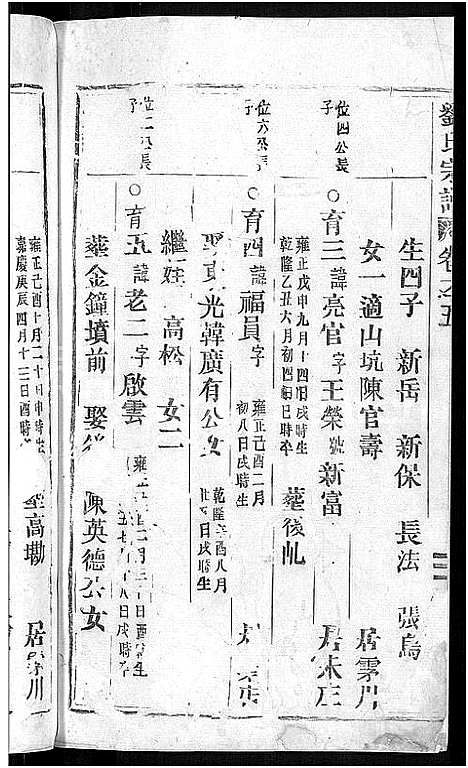 劉氏宗譜 卷之五
生四子 新岳 新保 長法 張烏
女一適山坑陳官壽 居雩川
位四公長子
○育三諱亮官字王榮號新富 居朱庄
雍正戊申九月十四日戌時生
乾隆乙丑六月初四日巳時卒 葬後乩
位六公長子
○育四諱福員字 雍正己酉二月初八日戌時生
娶東光韓廣有公女 乾隆辛酉八月廿五日戌時生
繼姪高松 女二
位二公長子
○育五諱老二字啟雲
葬金鐘墳前 娶 陳英德公女
雍正己酉十月二十日申時生
嘉慶庚辰四月十三日酉時 葬高墈 居雩川